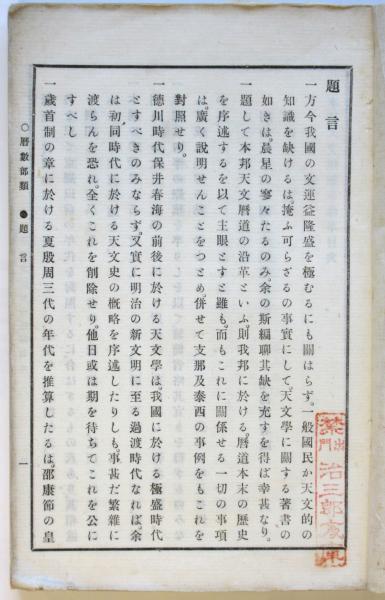 題言
一方今我國の文運益隆盛を極むるにも關はらず。一般國民か天文的の
知識を缺けるは掩ふ可らざるの事實にして天文學に關する著書の
如きは。晨星の寥々たるのみ。余の斯編聊其缺を充すを得ば幸甚なり。
一題して本邦天文曆道の沿革といふ。則我邦に於ける曆道本末の歷史
を序述するを以て主眼とすと雖も。而もこれに關係せる一切の事項
は。廣く說明せんことをつとめ。併せて支那及泰西の事例をもこれを
對照せり。
一德川時代保井春海の前後に於ける天文學は。我國に於ける極盛時代
とすべきのみならず。又實に明治の新文明に至る過渡時代なれば。余
は初。同時代に於ける天文史の槪略を序述したりしも。事甚だ繁雜に
渡らんを恐れ。全くこれを削除せり。他日或は期を待ちてこれを公に
すべし
一歲首制の章に於ける夏殷周三代の年代を推算したるは。邵康節の皇
○曆數部類 ●題言 一
治三郎